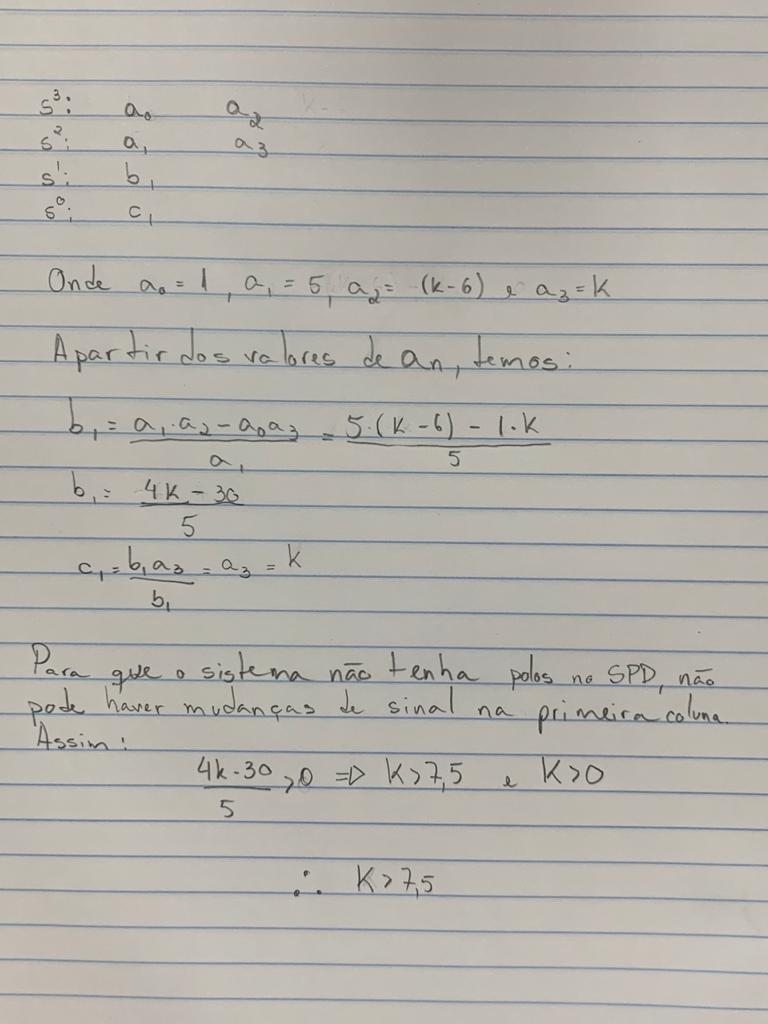 s³: a₀ a₂
s²: a₁ a₃
s¹: b₁
s⁰: c₁
Onde a₀ = 1, a₁ = 5, a₂ = (k-6) e a₃ = K
Apartir dos valores de an, temos:
b₁ = (a₁·a₂ - a₀a₃)/a₁ = (5·(K-6) - 1·K)/5
b₁ = (4K - 30)/5
c₁ = b₁a₃/b₁ = a₃ = K
Para que o sistema não tenha polos no SPD, não
pode haver mudanças de sinal na primeira coluna.
Assim:
(4k-30)/5 > 0 ⇒ K>7,5 e K>0
∴ K>7,5